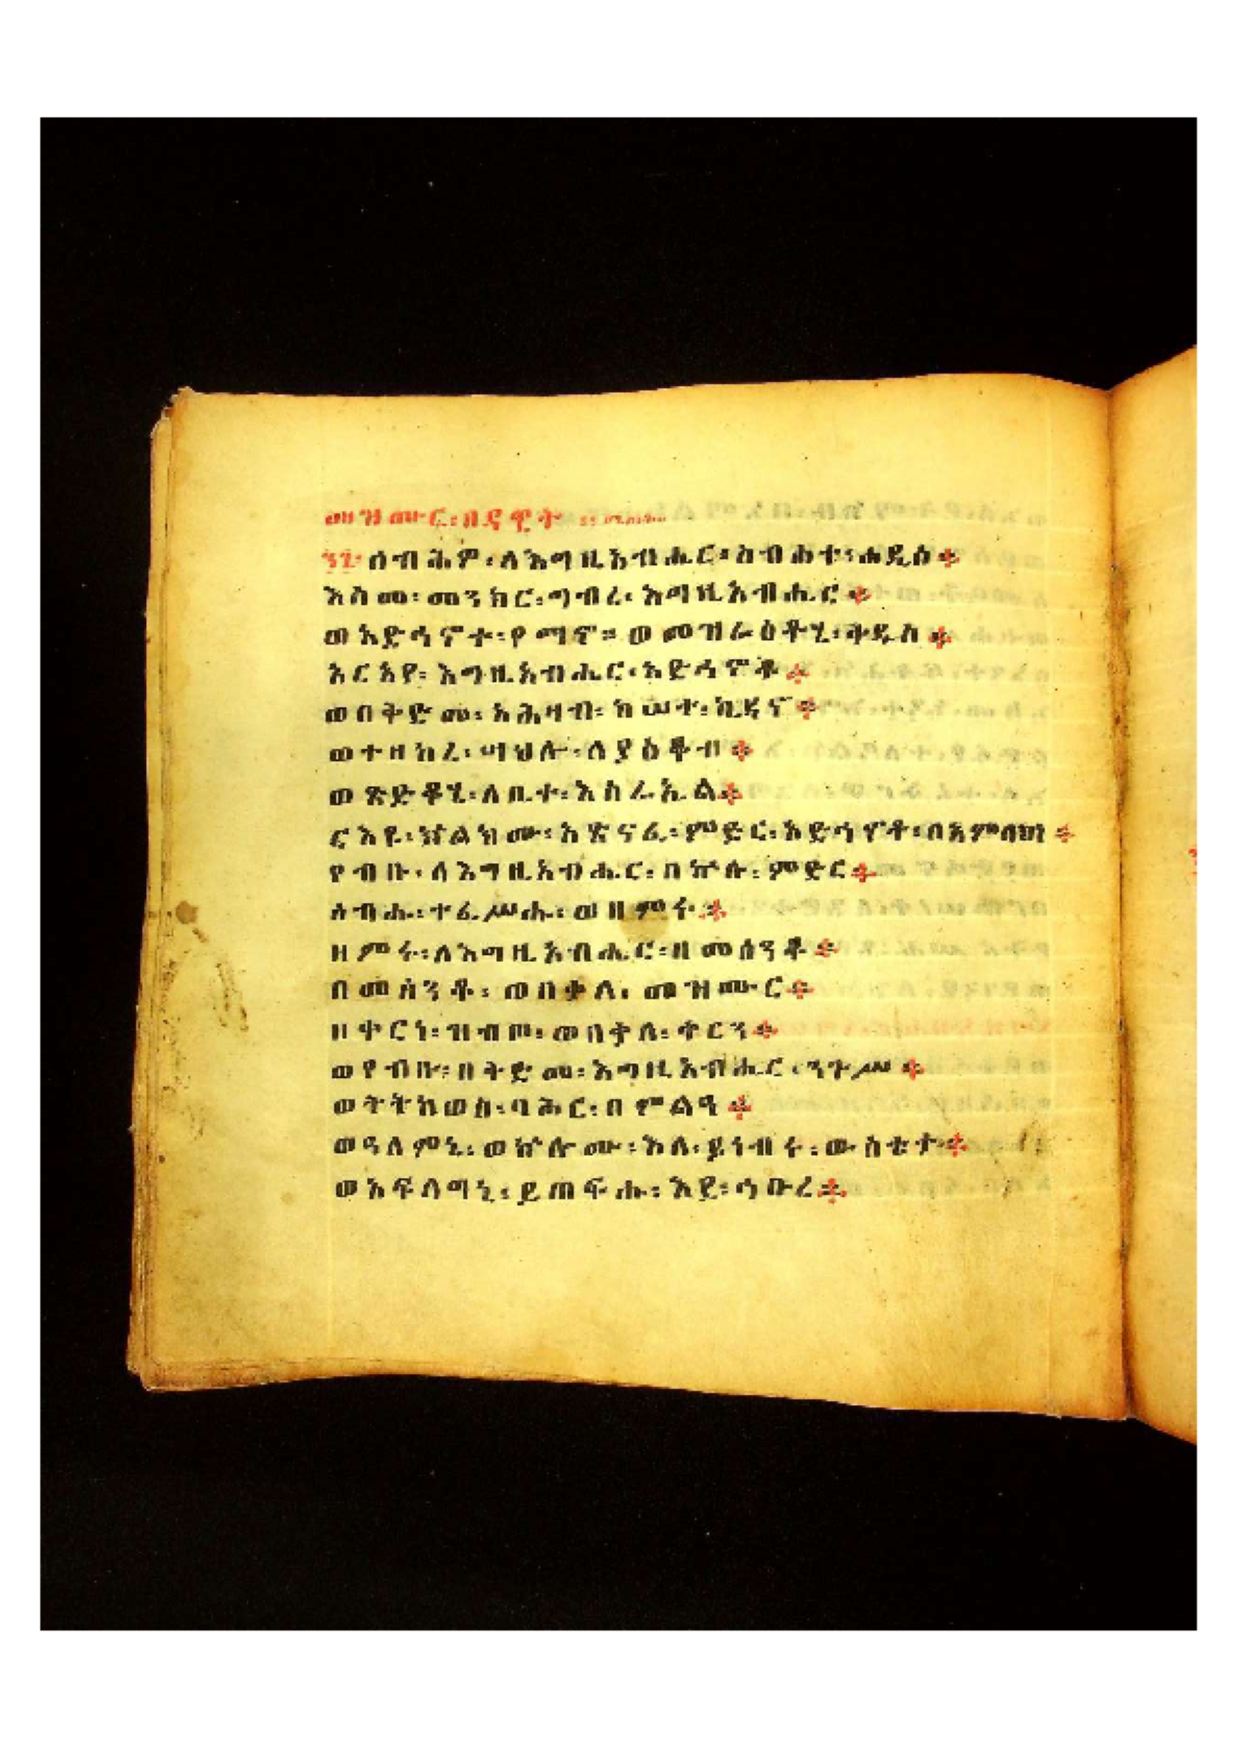 መዝሙር፡ዘዳዊት
፺፯ ሰብሕዎ፡ለእግዚአብሔር፡ስብሐተ፡ሐዲሰ፨
እስመ፡መንክር፡ግብረ፡እግዚአብሔር፨
ወአድኀኖተ፡የማኖ፡፡ወመዝራዕቶሂ፡ቅዱስ፨
አርአየ፡እግዚአብሔር፡አድኀኖቶ፨
ወበቅድመ፡አሕዛብ፡ከሠተ፡ኪዳኖ፨
ወተዘከረ፡ሣህሉ፡ለያዕቆብ፨
ወጽድቆሂ፡ለቤተ፡እስራኤል፨
ርእዩ፡ኵልክሙ፡አጽናፈ፡ምድር፡አድኅኖቶ፡በአምላክነ፨
የብቡ፡ለእግዚአብሔር፡በኵሉ፡ምድር፨
ሰብሑ፡ተፈሥሑ፡ወዘምሩ፨
ዘምሩ፡ለእግዚአብሔር፡በመሰንቆ፨
በመሰንቆ፡ወበቃለ፡መዝሙር፨
በቀርነ፡ዝብጦ፡ወበቃለ፡ቀርን፨
ወየብቡ፡በቅድመ፡እግዚአብሔር፡ንጉሥ፨
ወትትከወስ፡ባሕር፡በምልዓ፨
ወዓለምኒ፡ወኵሎሙ፡እለ፡ይነብሩ፡ውስቴታ፨
ወአፍላግኒ፡ይጠፍሑ፡እደ፡ኅቡረ፨